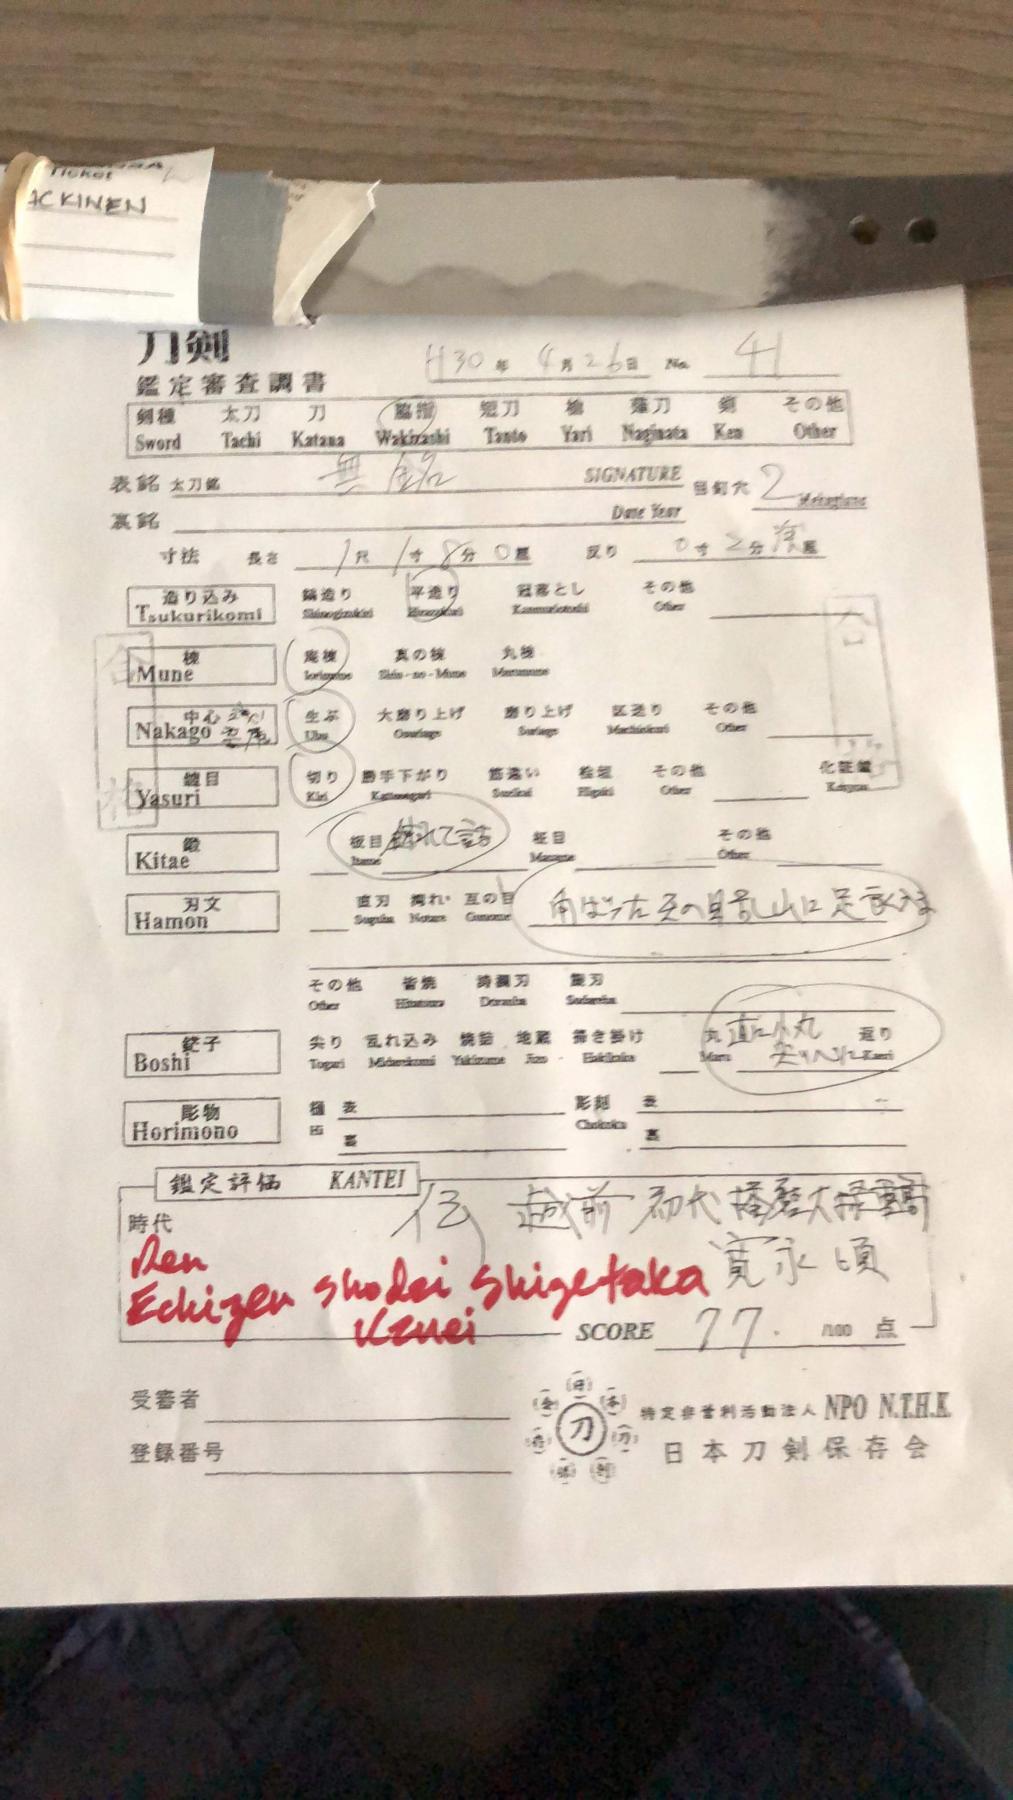 Ticket
ACKINEN
刀剣
鑑定審査調書
H30年 4月26日 No. 41
剣種 太刀 刀 脇指 短刀 槍 薙刀 剣 その他
Sword Tachi Katana Wakizashi Tanto Yari Naginata Ken Other
表銘 太刀銘 無銘 SIGNATURE 目釘穴 2 Mekugiana
裏銘 Date Year
寸法 長さ 1尺1寸8分0厘 反り 0寸2分 厘
造り込み 鎬造り 平造り 冠落とし その他
Tsukurikomi Shinogizukuri Hirazukuri Kanmuriotoshi Other
棟 庵棟 真の棟 丸棟
Mune Iorimune Shin-no-Mune Marumune
中心 生ぶ 大磨り上げ 磨り上げ 区送り その他
Nakago Ubu Osuriage Suriage Machiokuri Other
鑢目 切り 勝手下がり 筋違い 桧垣 その他 化粧鑢
Yasuri Kiri Kattesagari Sujikai Higaki Other Keshou
鍛 板目 流れて詰 柾目 その他
Kitae Itame Masame Other
刃文 直刃 湾れ 互の目 角ばった互の目乱 山に足
Hamon Suguha Notare Gunome
その他 皆焼 濤瀾刃 簾刃
Other Hitatsura Doranba Sudareba
鋩子 尖り 乱れ込み 焼詰 地蔵 掃き掛け 丸 直に小丸 返り
Boshi Togari Midarekomi Yakizume Jizo Hakikake Maru Kaeri
彫物 樋 表 彫刻 表
Horimono Hi 裏 Chokoku 裏
鑑定評価 KANTEI
時代 伝 越前 初代 播磨大掾重高
寛永頃
Den
Echizen Shodai Shigetaka
Kanei
SCORE 77. /100 点
受審者
登録番号
刀
特定非営利活動法人 NPO N.T.H.K.
日本刀剣保存会